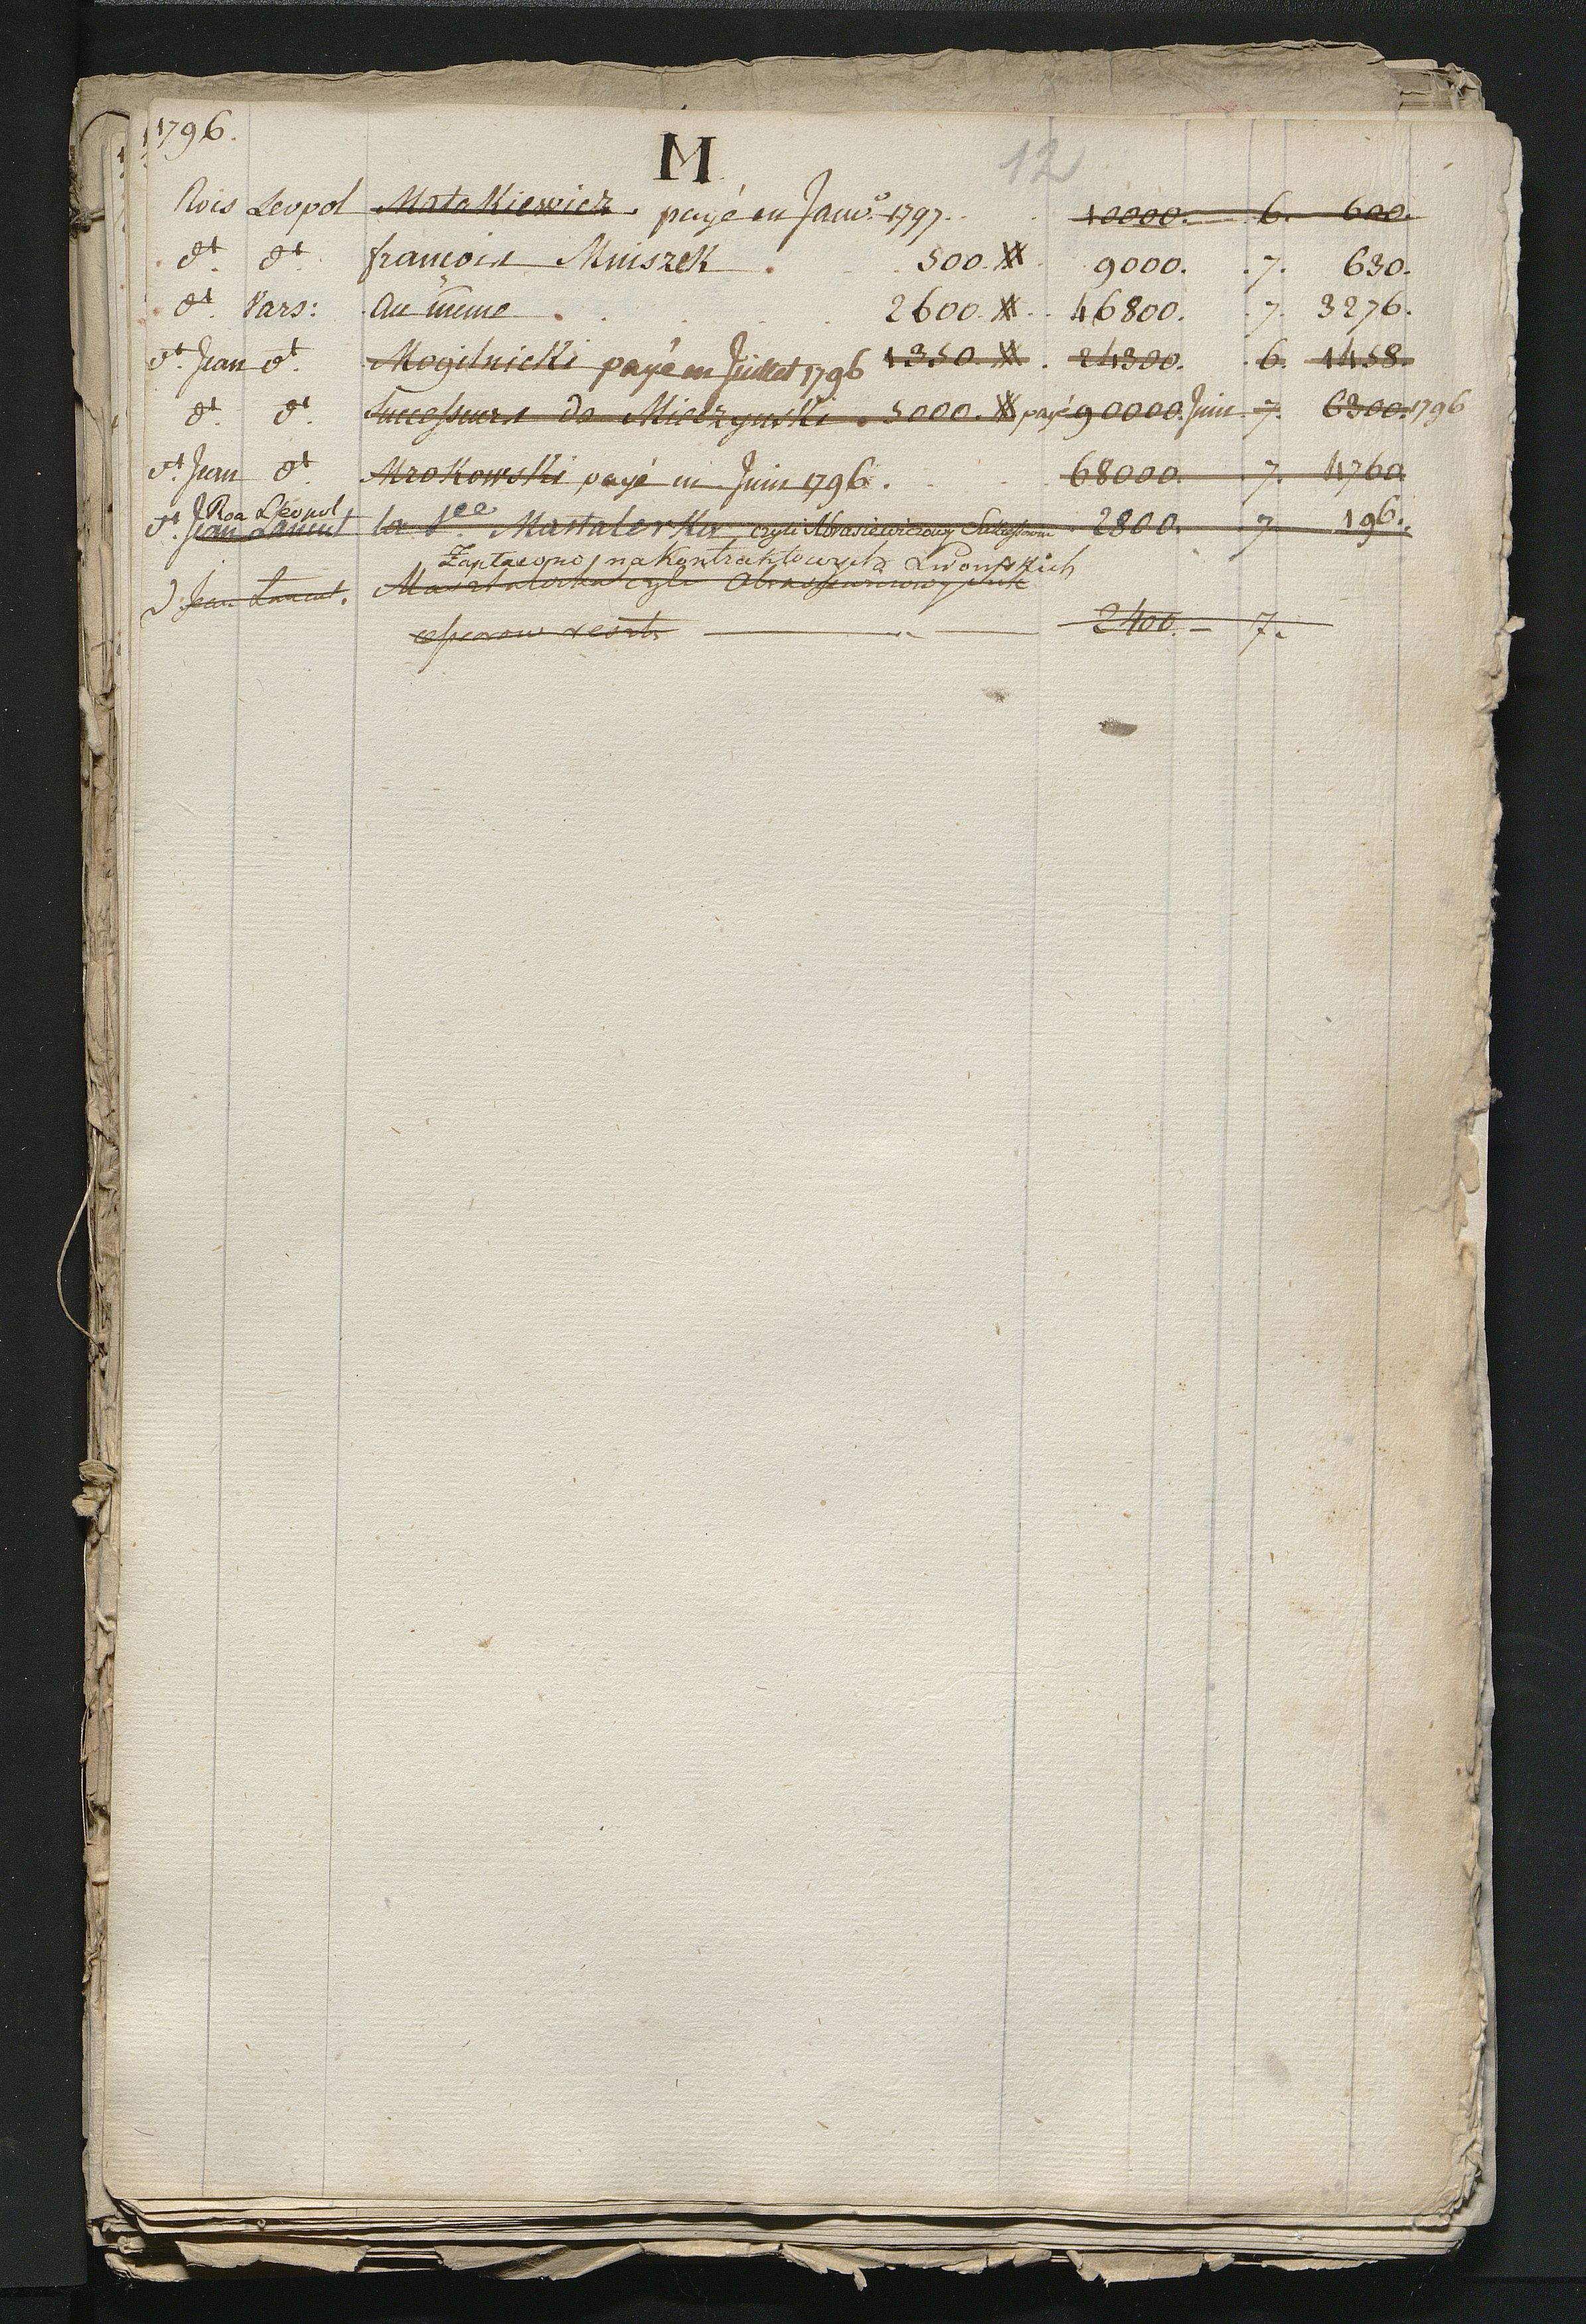 1796.
M
12
Rois Leopol Matakiewicz. payé en Janv. 1797. 10000. 6. 600.
dt. dt. françois Mniszek 500. # 9000. 7. 630.
dt. Vars: Au même 2600. # 46800. 7. 3276.
St. Jean dt. Mogilnicki payé en Juillet 1796 1350. # 24300. 6. 1458.
dt. dt. Successeurs de Mierzynski 5000. # payé 90000. Juin 7. 6300. 1796
St. Jean dt. Mrokowski payé en Juin 1796. 68000. 7. 4760
Roa Léopol
St. Jean Lancut la Mastalerka czyli Abrasiewiczowy Sukcessorom 2800. 7. 196.
Zapłacono na Kontraktowych Lwowskich
Jean Lancut. Masztalerka czyli
2400. 7.